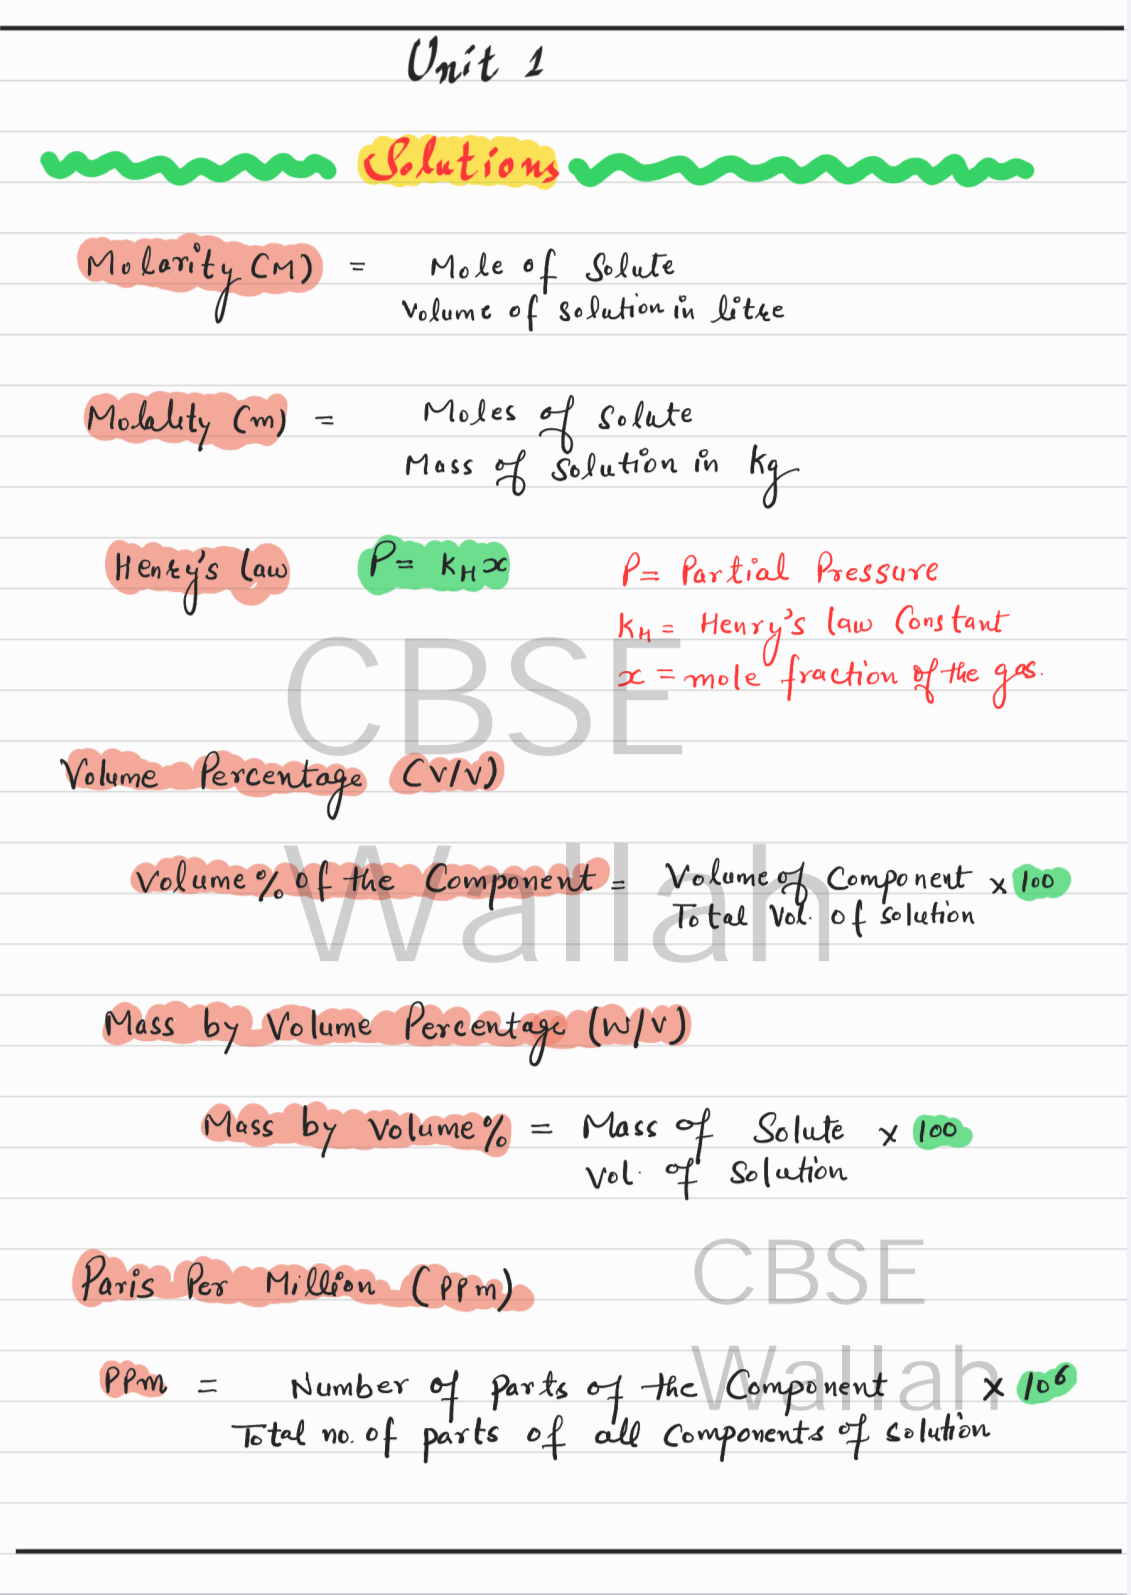 Unit 1
Solutions
Molarity (M) = Mole of Solute
Volume of solution in litre
Molality (m) = Moles of Solute
Mass of solution in kg
Henry's law P = KH x P = Partial Pressure
KH = Henry's law Constant
x = mole fraction of the gas.
CBSE
Volume Percentage (V/V)
Wallah
Volume % of the Component = Volume of Component × 100
Total Vol. of solution
Mass by Volume Percentage (W/V)
Mass by Volume % = Mass of Solute × 100
Vol. of Solution
Paris Per Million (PPm)
CBSE
Wallah
PPm = Number of parts of the Component × 10⁶
Total no. of parts of all Components of solution